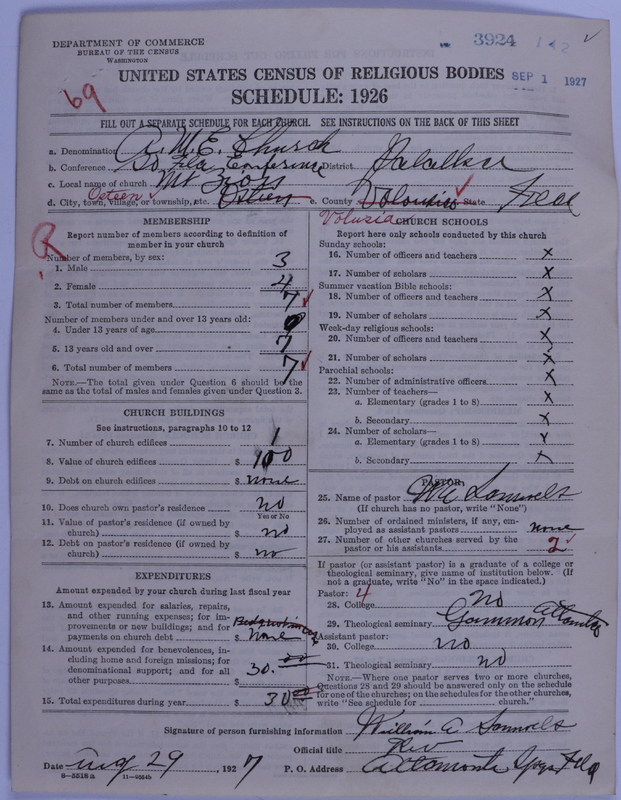 DEPARTMENT OF COMMERCE
BUREAU OF THE CENSUS
WASHINGTON
3924 1-2
UNITED STATES CENSUS OF RELIGIOUS BODIES
SEP 1 1927
SCHEDULE: 1926
69
FILL OUT A SEPARATE SCHEDULE FOR EACH CHURCH. SEE INSTRUCTIONS ON THE BACK OF THIS SHEET
a. Denomination A. M. E. Church
b. Conference So Fla Conference District Palatka
c. Local name of church Mt
Osteen
d. City, town, village, or township, etc. Osteen e. County State Fla
Volusia
R
MEMBERSHIP
Report number of members according to definition of
member in your church
Number of members, by sex:
1. Male 3
2. Female 4
3. Total number of members 7
Number of members under and over 13 years old:
4. Under 13 years of age 0
5. 13 years old and over 7
6. Total number of members 7
NOTE.—The total given under Question 6 should be the
same as the total of males and females given under Question 3.
CHURCH BUILDINGS
See instructions, paragraphs 10 to 12
7. Number of church edifices 1
8. Value of church edifices $ 100
9. Debt on church edifices $ none
10. Does church own pastor's residence no
Yes or No
11. Value of pastor's residence (if owned by
church) $ no
12. Debt on pastor's residence (if owned by
church) $ no
EXPENDITURES
Amount expended by your church during last fiscal year
13. Amount expended for salaries, repairs,
and other running expenses; for im-
provements or new buildings; and for
payments on church debt $ none
14. Amount expended for benevolences, in-
cluding home and foreign missions; for
denominational support; and for all
other purposes $ 30.00
15. Total expenditures during year $ 30.00
CHURCH SCHOOLS
Report here only schools conducted by this church
Sunday schools:
16. Number of officers and teachers x
17. Number of scholars x
Summer vacation Bible schools:
18. Number of officers and teachers x
19. Number of scholars x
Week-day religious schools:
20. Number of officers and teachers x
21. Number of scholars x
Parochial schools:
22. Number of administrative officers x
23. Number of teachers—
a. Elementary (grades 1 to 8) x
b. Secondary x
24. Number of scholars—
a. Elementary (grades 1 to 8) x
b. Secondary x
PASTOR
25. Name of pastor W A Samuels
(If church has no pastor, write "None")
26. Number of ordained ministers, if any, em-
ployed as assistant pastors none
27. Number of other churches served by the
pastor or his assistants 2
If pastor (or assistant pastor) is a graduate of a college or
theological seminary, give name of institution below. (If
not a graduate, write "No" in the space indicated.)
Pastor: 4
28. College no
29. Theological seminary Gammon Atlanta
Assistant pastor:
30. College no
31. Theological seminary no
NOTE.—Where one pastor serves two or more churches,
Questions 28 and 29 should be answered only on the schedule
for one of the churches; on the schedules for the other churches,
write "See schedule for church."
Signature of person furnishing information William A Samuels
Official title Rev
Date Aug 29, 1927 P. O. Address Altamonte Spgs Fla
8—5518 a 11—9554b